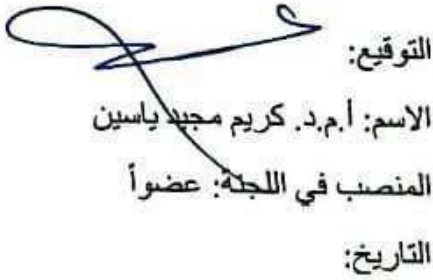 التوقيع:
الاسم: أ.م.د. كريم مجيد ياسين
المنصب في اللجنة: عضواً
التاريخ: